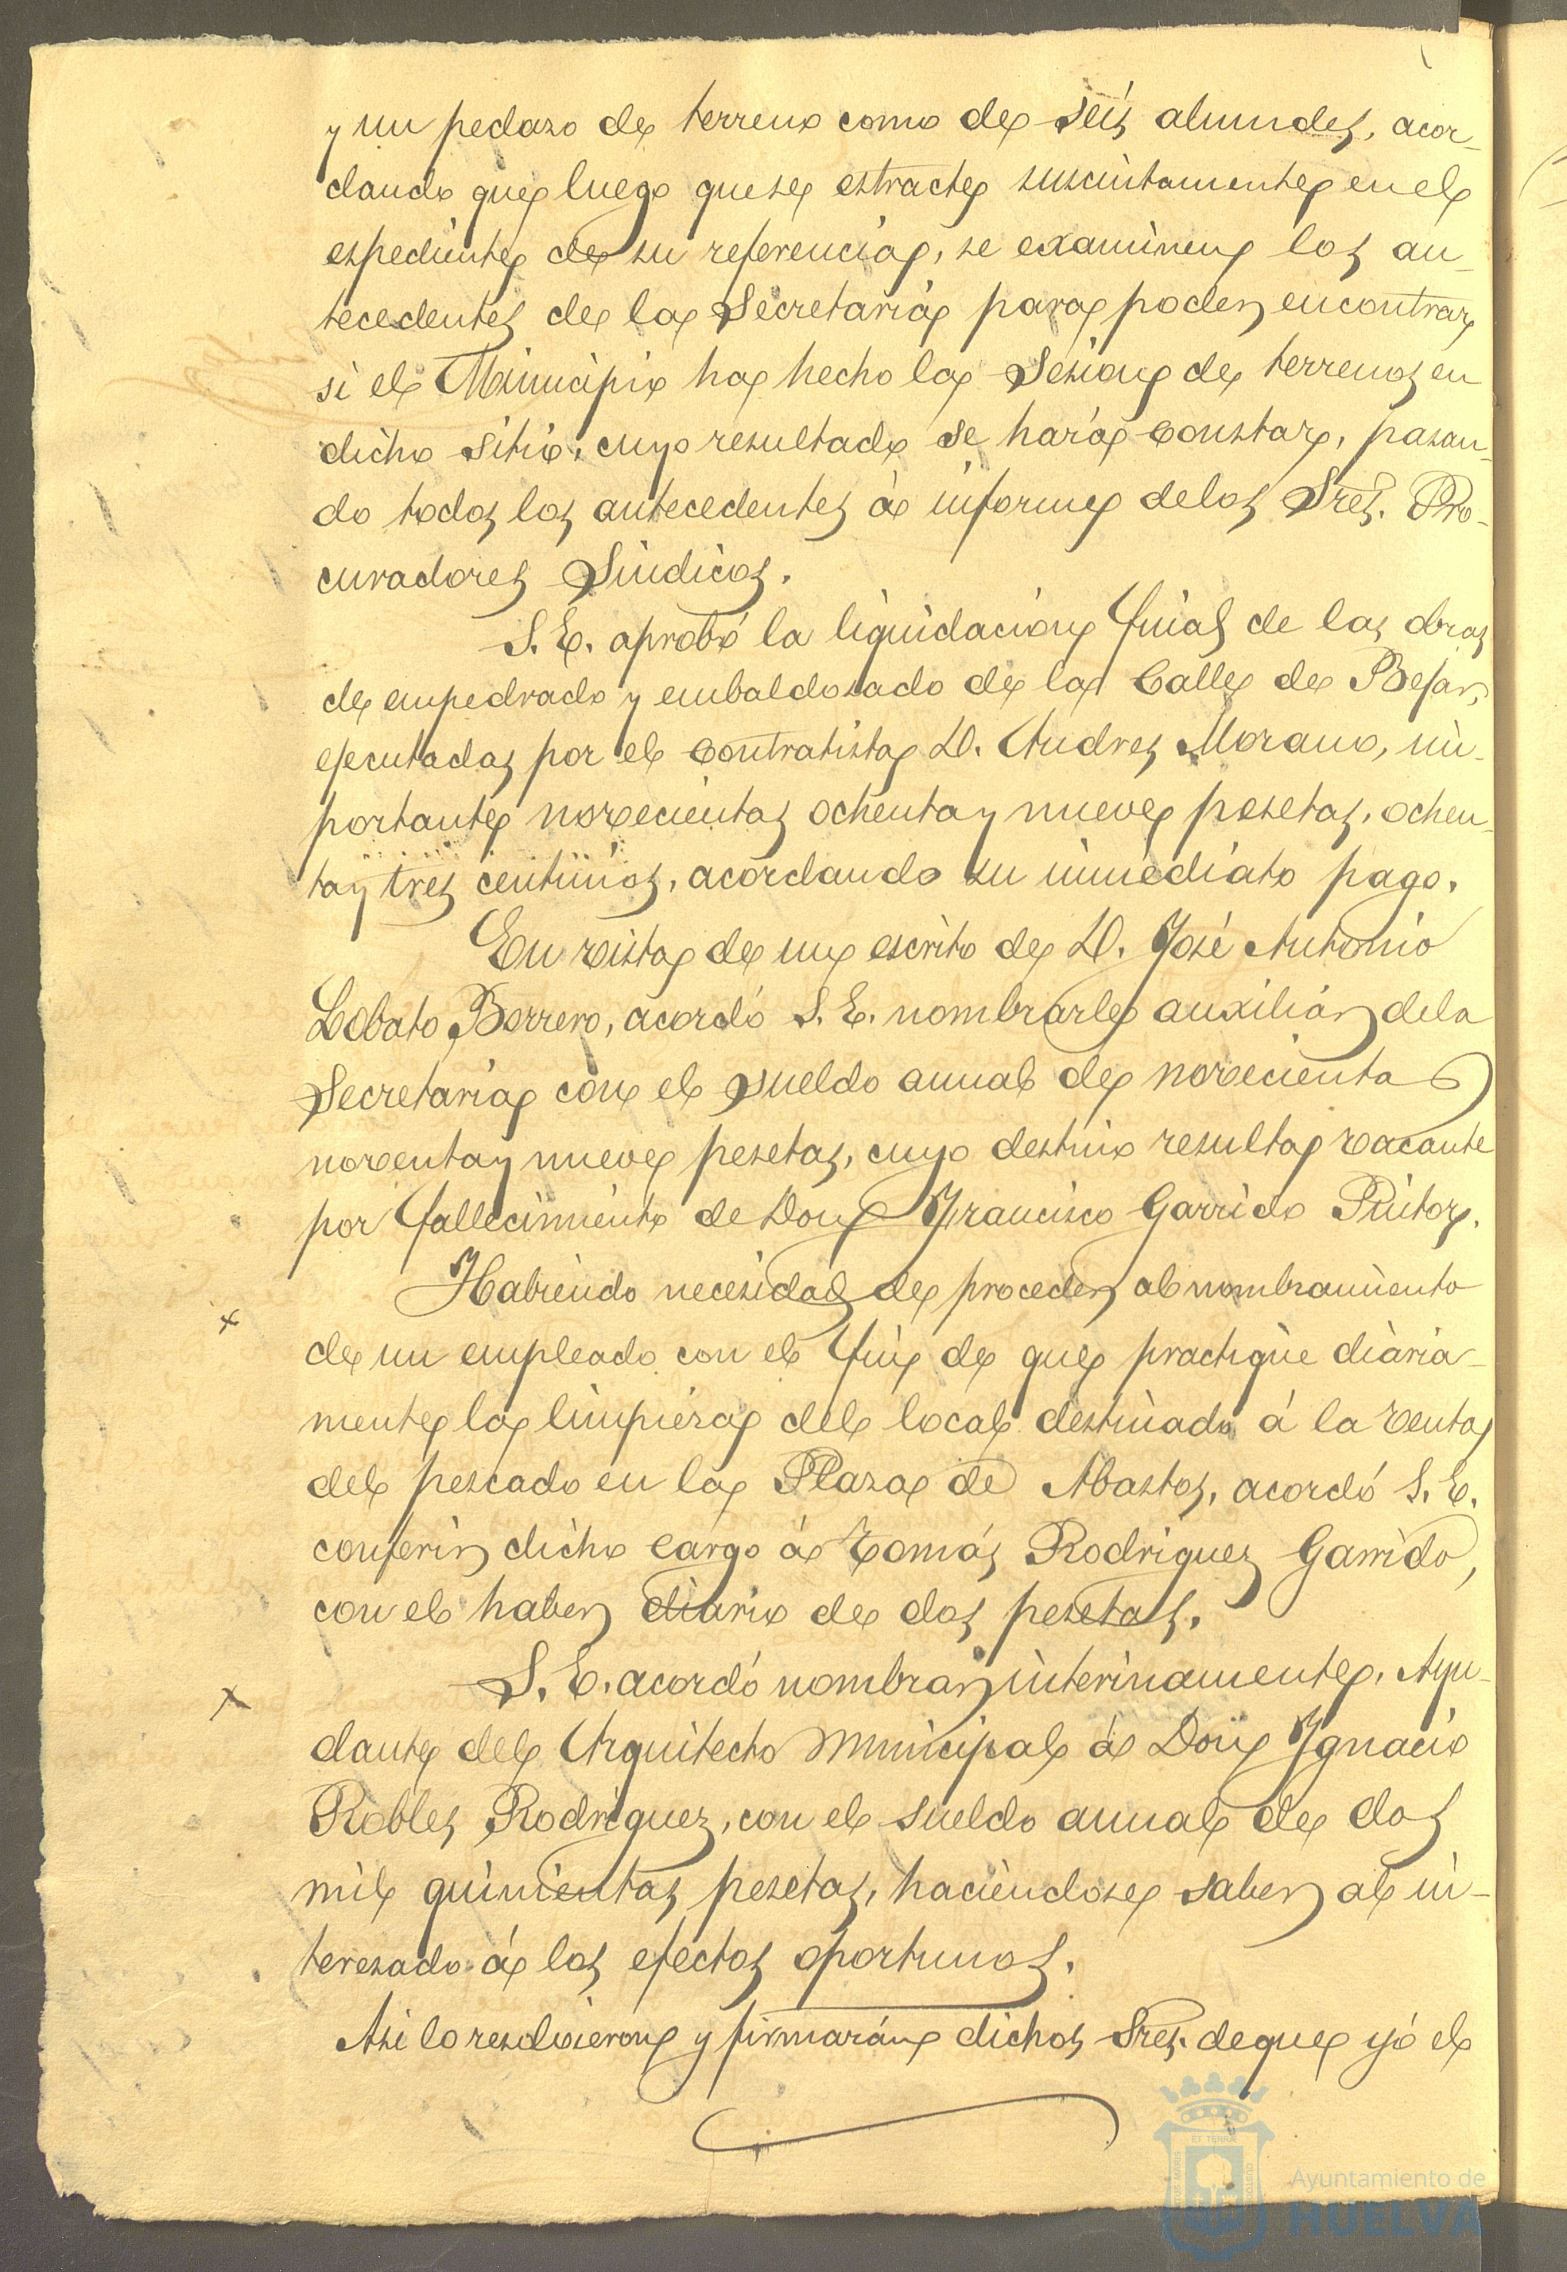 y un pedazo de terreno como de seis almudes, acor-
dando que luego que se estracte suscintamente en el
espediente de su referencia, se examinen los an-
tecedentes de la Secretaría para poder encontrar
si el Municipio ha hecho la sesion de terrenos en
dicho sitio, cuyo resultado se hará constar, pasan-
do todos los antecedentes á informe de los Sres. Pro-
curadores Sindicos.
S. E. aprobó la liquidacion final de las obras
de empedrado y embaldosado de la Calle de Bejar,
ejecutadas por el contratista D. Andres Morano, im-
portante novecientas ochenta y nueve pesetas, ochen-
ta y tres centimos, acordando su inmediato pago.
En vista de un escrito de D. José Antonio
Lobato Borrero, acordó S. E. nombrarle auxiliar de la
Secretaría con el sueldo anual de novecientas
noventa y nueve pesetas, cuyo destino resulta vacante
por fallecimiento de Don Francisco Garrido Pintor.
x Habiendo necesidad de proceder al nombramiento
de un empleado con el fin de que practique diaria-
mente la limpieza del local destinado á la venta
del pescado en la Plaza de Abastos, acordó S. E.
conferir dicho cargo á Tomás Rodriguez Garrido,
con el haber diario de dos pesetas.
x S. E. acordó nombrar interinamente, Ayu-
dante del Arquitecto Municipal á Don Ignacio
Robles Rodriguez, con el sueldo anual de dos
mil quinientas pesetas, haciendose saber al in-
teresado á los efectos oportunos.
Asi lo resolvieron y firmarán dichos Sres. de que yó el
Ayuntamiento de
HUELVA